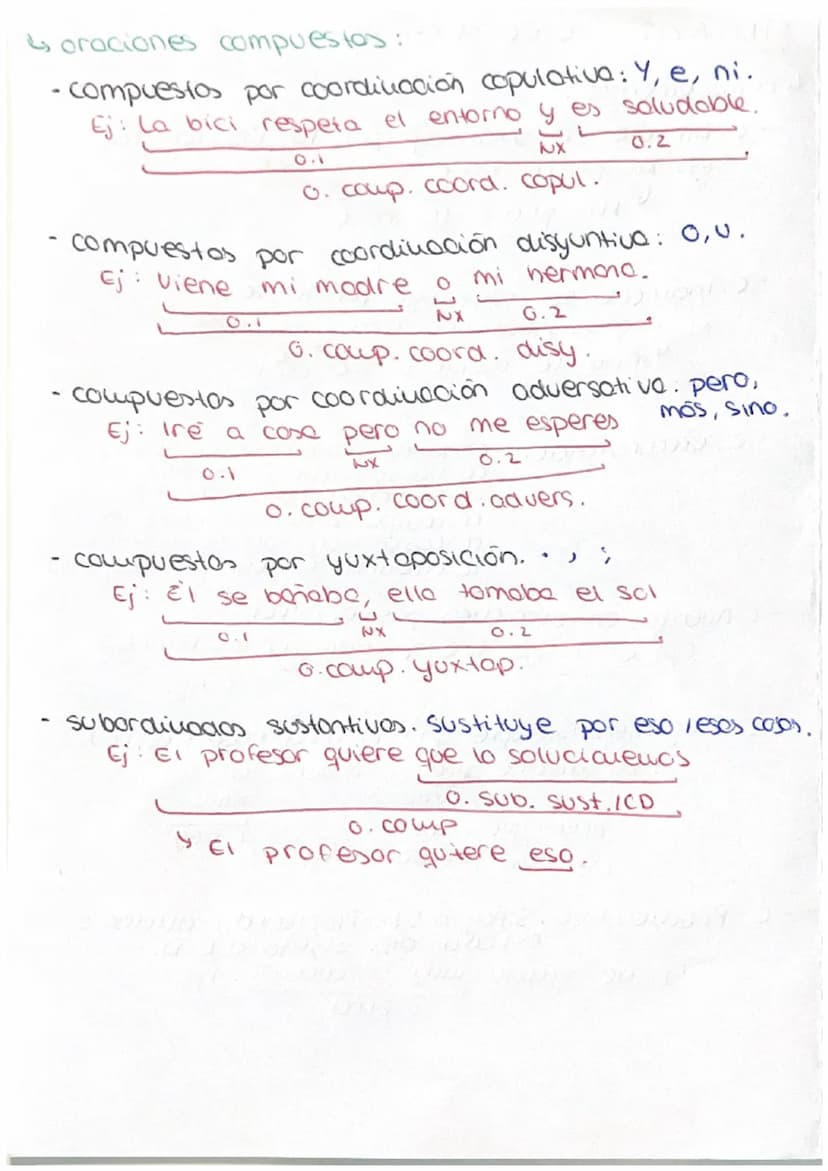 ↳ oraciones compuestas:
- compuestas por coordinación copulativa: Y, e, ni.
Ej: La bici respeta el entorno y es saludable.
O.1 NX O.2
O. comp. coord. copul.
- compuestas por coordinación disyuntiva: O, U.
Ej: Viene mi madre o mi hermana.
O.1 NX O.2
O. comp. coord. disy.
- compuestas por coordinación adversativa: pero,
más, sino.
Ej: Iré a casa pero no me esperes
O.1 NX O.2
O. comp. coord. advers.
- compuestas por yuxtaposición. . , ;
Ej: Él se bañaba, ella tomaba el sol
O.1 NX O.2
O. comp. yuxtap.
- subordinadas sustantivas. Sustituye por eso/esas cosas.
Ej: El profesor quiere que lo solucionemos
O. sub. sust./CD
O. comp
↳ El profesor quiere eso.